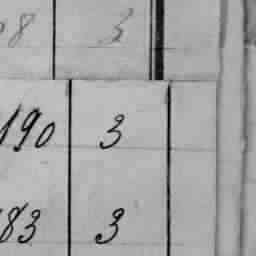 8 3
190 3
83 3